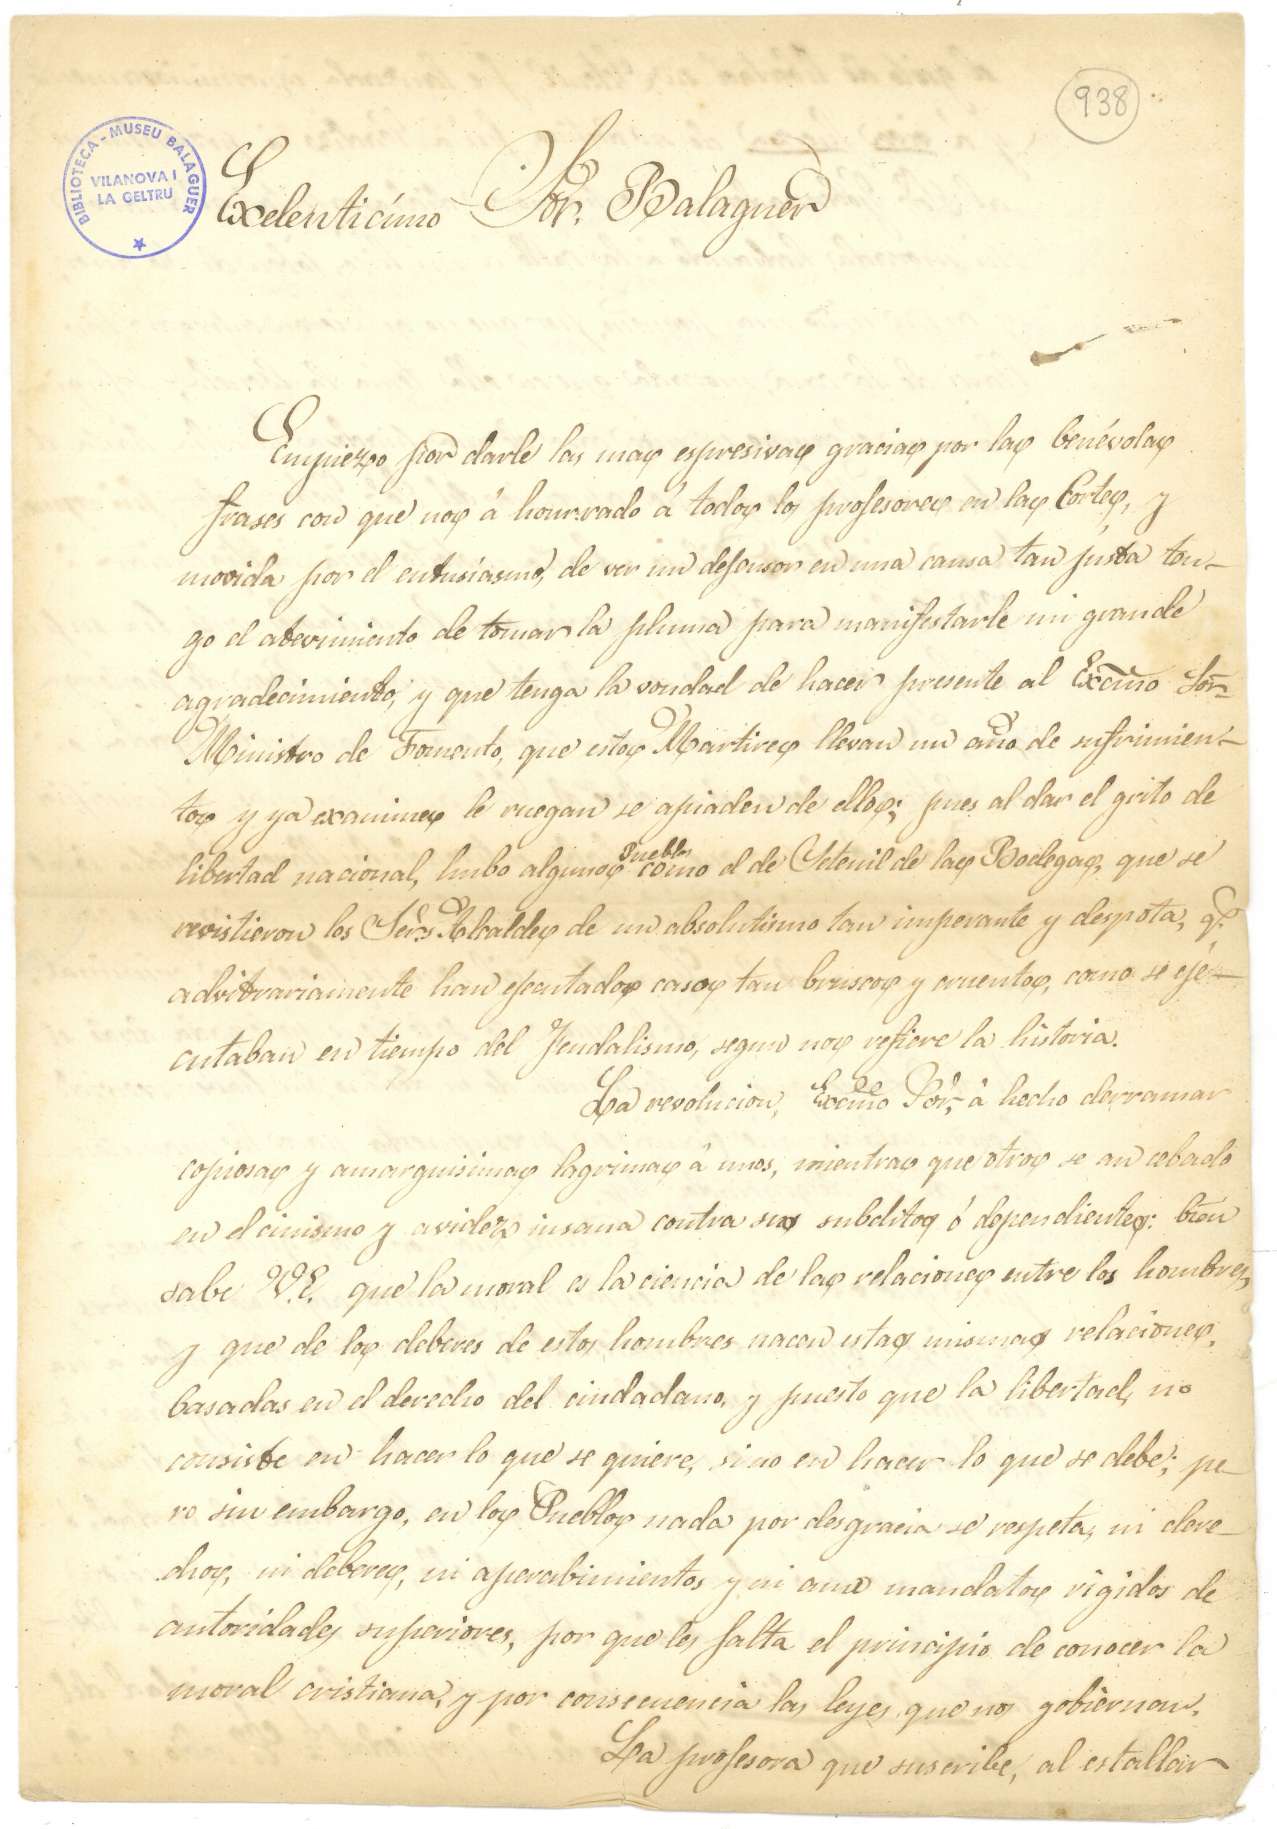 938
BIBLIOTECA - MUSEU BALAGUER
VILANOVA I
LA GELTRU
Exelenticimo Sor. Balaguer
Empiezo por darle las mas espresivas gracias por las benévolas
frases con que nos á hourrado á todos los profesores en las Cortes, y
movida por el entusiasmo, de ver un defensor en una causa tan justa ten-
go el atevimiento de tomar la pluma para manifestarle mi grande
agradecimiento, y que tenga la vondad de hacer presente al Excmo Sor.
Ministro de Fomento, que estos Martires llevan un año de sufrimien-
tos y ya exanimes le ruegan se apiaden de ellos; pues al dar el grito de
libertad nacional, hubo algunos Pueblos como el de Setenil de las Bodegas, que se
revistieron los Señrs Alcaldes de un absolutismo tan imperante y despota, q.e
advitrariamente han ejecutados casos tan bruscos y cruentos, como se eje-
cutaban en tiempo del Feudalismo, segun nos refiere la historia.
La revolucion, Excmo Sor, á hecho derramar
copiosas y amarguisimas lagrimas á unos, mientras que otros se an cebado
en el cinismo y avidez insana contra sus subditos ó dependientes: bien
sabe V.E. que la moral es la ciencia de las relaciones entre los hombres,
y que de los deberes de estos hombres nacen estas mismas relaciones,
basadas en el derecho del ciudadano, y puesto que la libertad, no
consiste en hacer lo que se quiere, sino en hacer lo que se debe; pe-
ro sin embargo, en los Pueblos nada por desgracia se respeta, ni dere-
chos, ni deberes, ni apercibimientos y ni aun mandatos rigidos de
autoridades superiores, por que les falta el principio de conocer la
moral cristiana, y por consecuencia las leyes que nos gobiernan.
La profesora que suscribe, al estallar